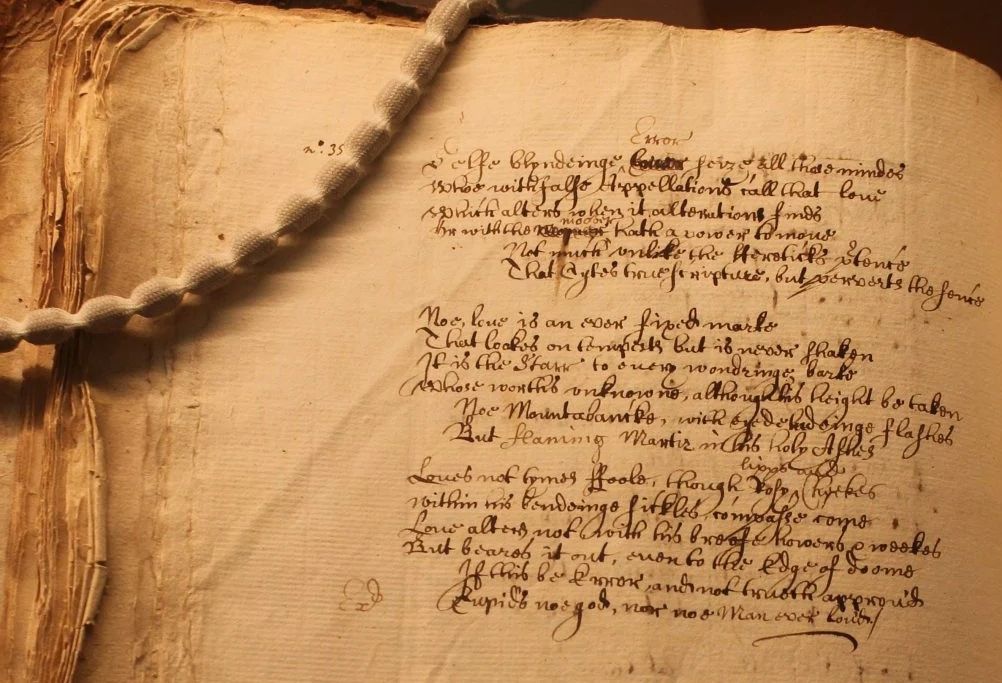 n°. 35
Selfe blyndeinge Error seize all those mindes
Whoe with false Appellations call that love
Which alters when it alterations finds
Or with the mover hath a power to move
Not much unlike the Hereticks p'tence
That Cytes true scripture, but perverts the sence
Noe, love is an ever fixed marke
That lookes on tempests but is never shaken
It is the Starr to every wandringe barke
Whose worths unknowne, although his height be taken
Noe Mountabancke, with eyedeludeinge flashes
But flaming Martir in his holy Ashes
Loves not tymes Foole, though Rosy lipps and Cheekes
within his bendeinge sickles, compasse come
Love alters not with his breife howers & weekes
But beares it out, even to the Edge of doome
If this be Error, and not trueth approv'd
Cupids noe god, nor noe Man ever lov'd